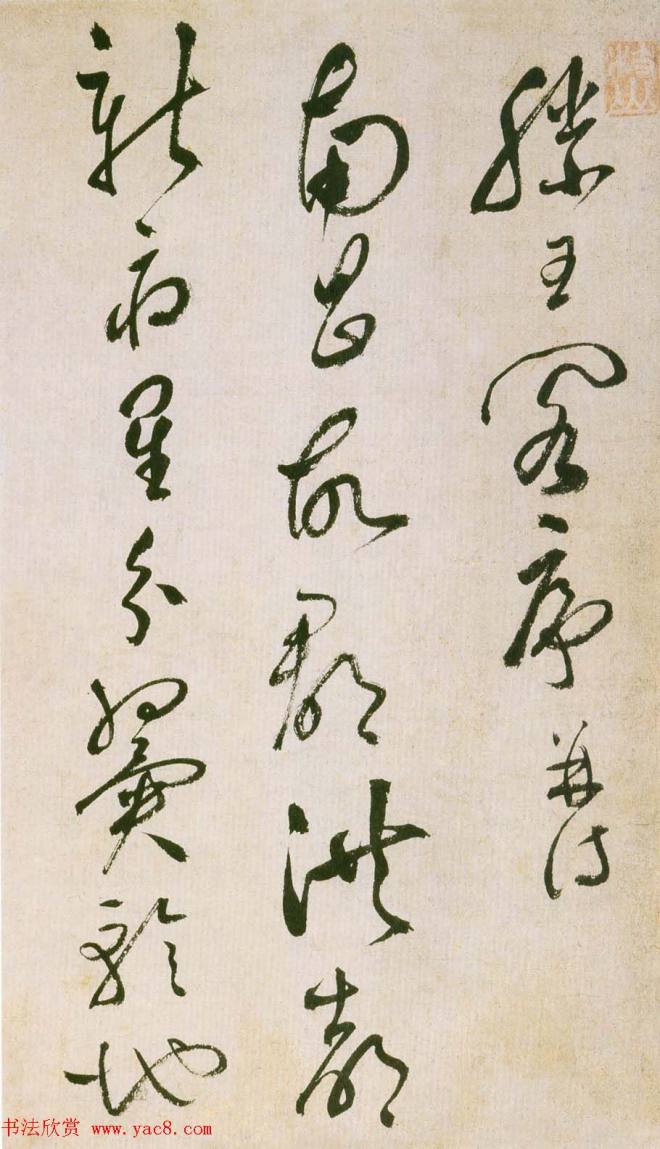 滕王阁序 并诗
南昌故郡洪都
新府星分翼轸地
书法欣赏 www.yac8.com